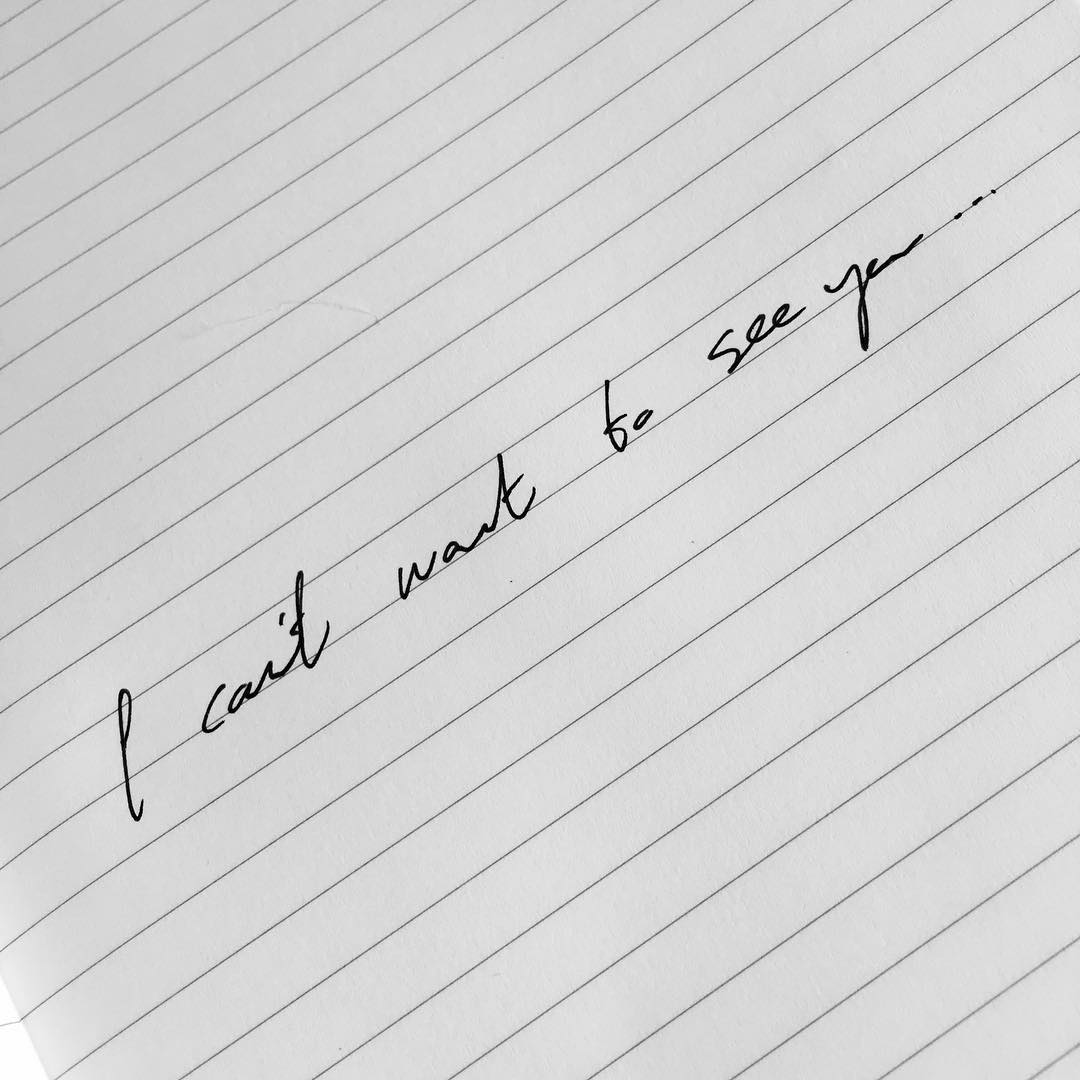 I can't want to see you...